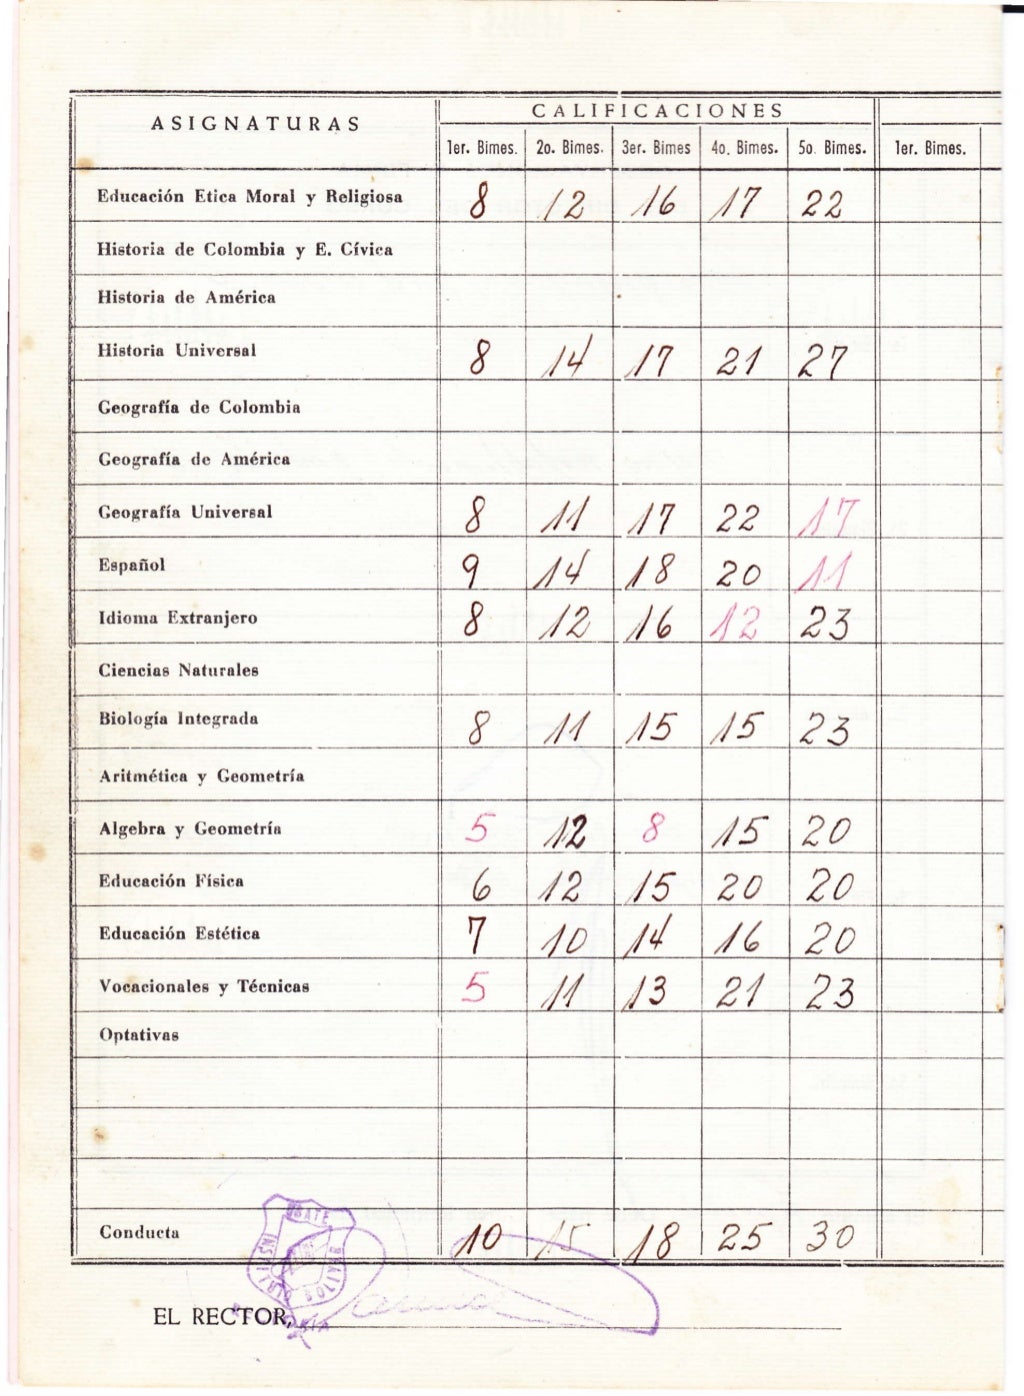 ASIGNATURAS CALIFICACIONES
1er. Bimes. 2o. Bimes. 3er. Bimes 4o. Bimes. 5o. Bimes. 1er. Bimes.
Educación Etica Moral y Religiosa 8 12 16 17 22
Historia de Colombia y E. Cívica
Historia de América
Historia Universal 8 14 17 21 27
Geografía de Colombia
Geografía de América
Geografía Universal 8 11 17 22 17
Español 9 14 18 20 11
Idioma Extranjero 8 12 16 12 23
Ciencias Naturales
Biología Integrada 8 11 15 15 23
Aritmética y Geometría
Algebra y Geometría 5 12 8 15 20
Educación Física 6 12 15 20 20
Educación Estética 7 10 14 16 20
Vocacionales y Técnicas 5 11 13 21 23
Optativas
Conducta 10 15 18 25 30
UBATE
BOLIVAR
EL RECTOR,